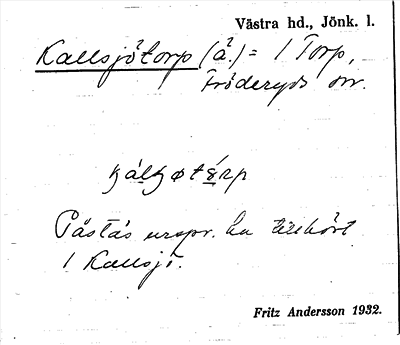 Västra hd., Jönk. l.
Kallsjötorp (å.) = 1 Torp,
Fröderyds sn.
Påstås urspr. ha tillhört
1 Kallsjö.
Fritz Andersson 1932.